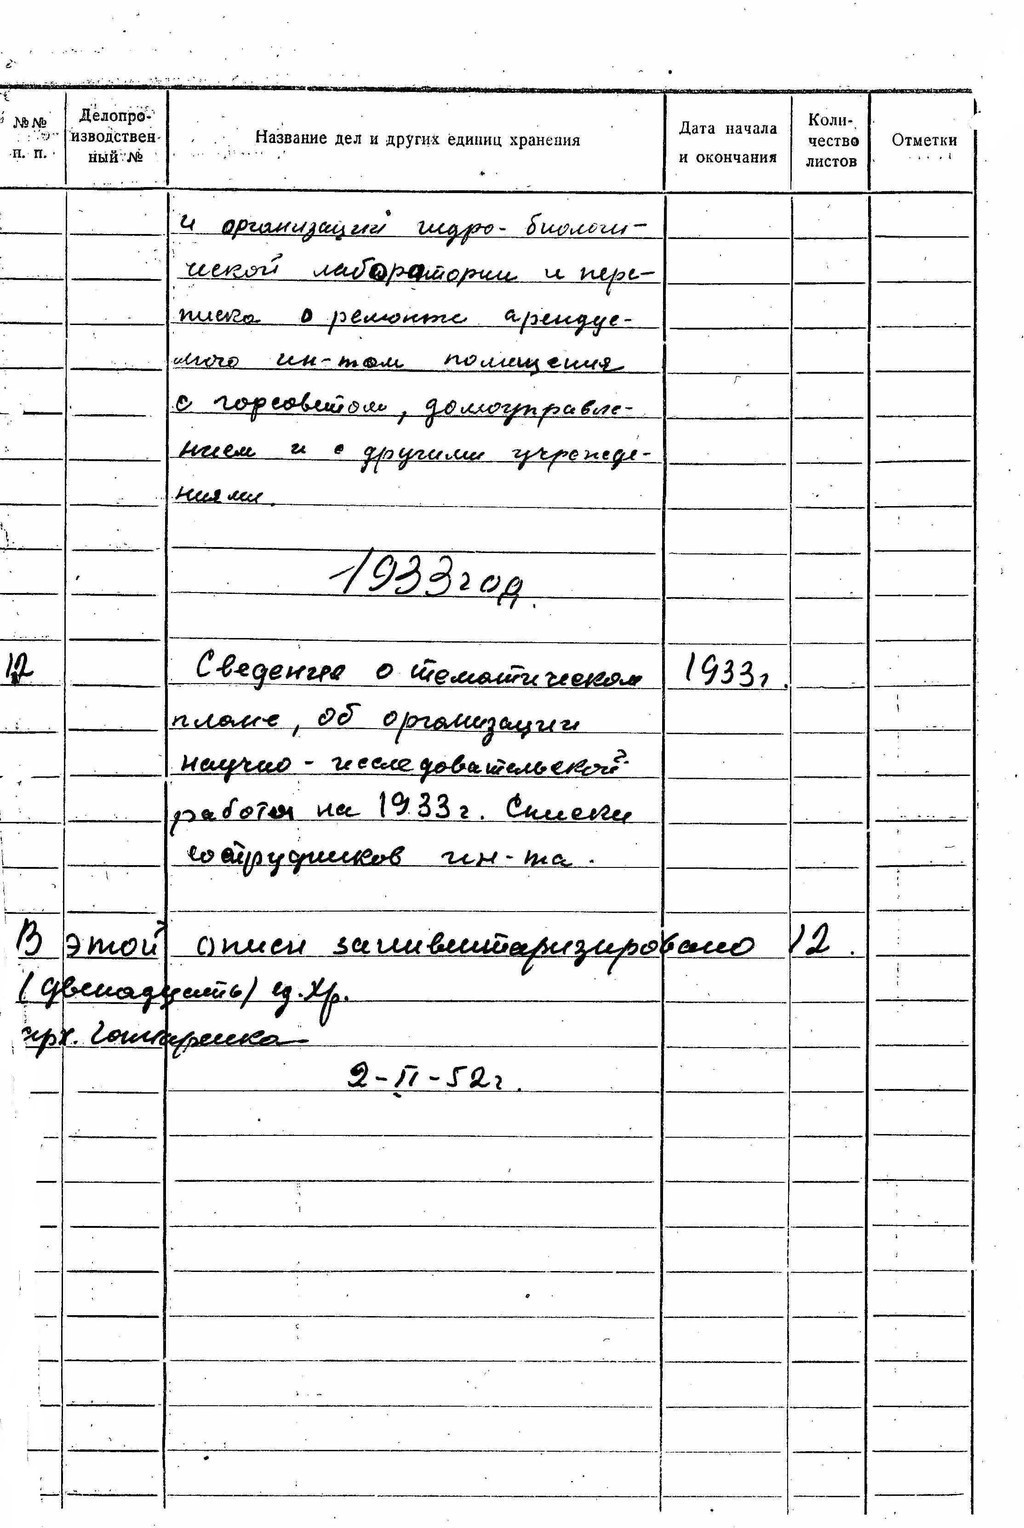 №№ п. п.
Делопро-
изводствен-
ный №
Название дел и других единиц хранения
Дата начала
и окончания
Коли-
чество
листов
Отметки
и организаций гидро-биологи-
ческой лаборатории и пере-
писка о ремонте арендуе-
мого ин-том помещения
с горсоветом, домоуправле-
нием и с другими учрежде-
ниями.
1933 год.
12 Сведения о тематическом 1933 г.
плане, об организации
научно-исследовательской
работы на 1933 г. Списки
сотрудников ин-та.
В этой описи заинвентаризировано 12.
(двенадцать) ед. хр.
арх. Гончаренко
2-II-52 г.